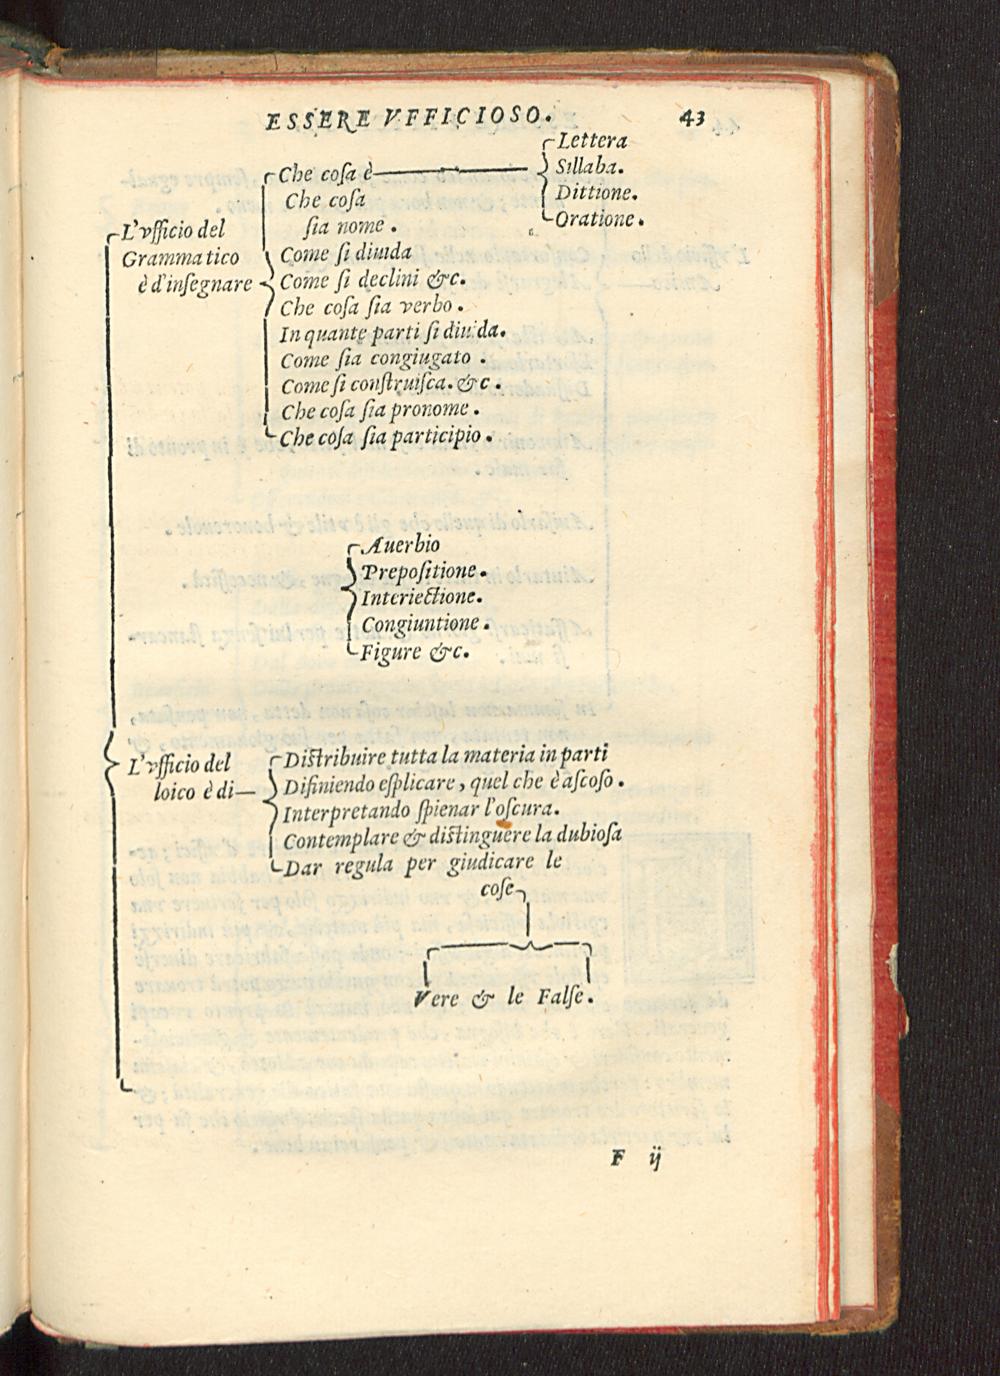 ESSERE VFFICIOSO. 43
Che coſa è
Lettera
Sillaba.
Dittione.
Oratione.
L'vfficio del
Grammatico
è d'inſegnare
Che coſa
ſia nome.
Come ſi diuida
Come ſi declini &c.
Che coſa ſia verbo.
In quante parti ſi diuida.
Come ſia congiugato.
Come ſi conſtruiſca. &c.
Che coſa ſia pronome.
Che coſa ſia participio.
Auerbio
Prepoſitione.
Interiectione.
Congiuntione.
Figure &c.
L'vfficio del
loico è di
Diſtribuire tutta la materia in parti
Difiniendo eſplicare, quel che è aſcoſo.
Interpretando ſpienar l'oſcura.
Contemplare & diſtinguere la dubioſa
Dar regula per giudicare le
coſe
Vere & le Falſe.
F ij